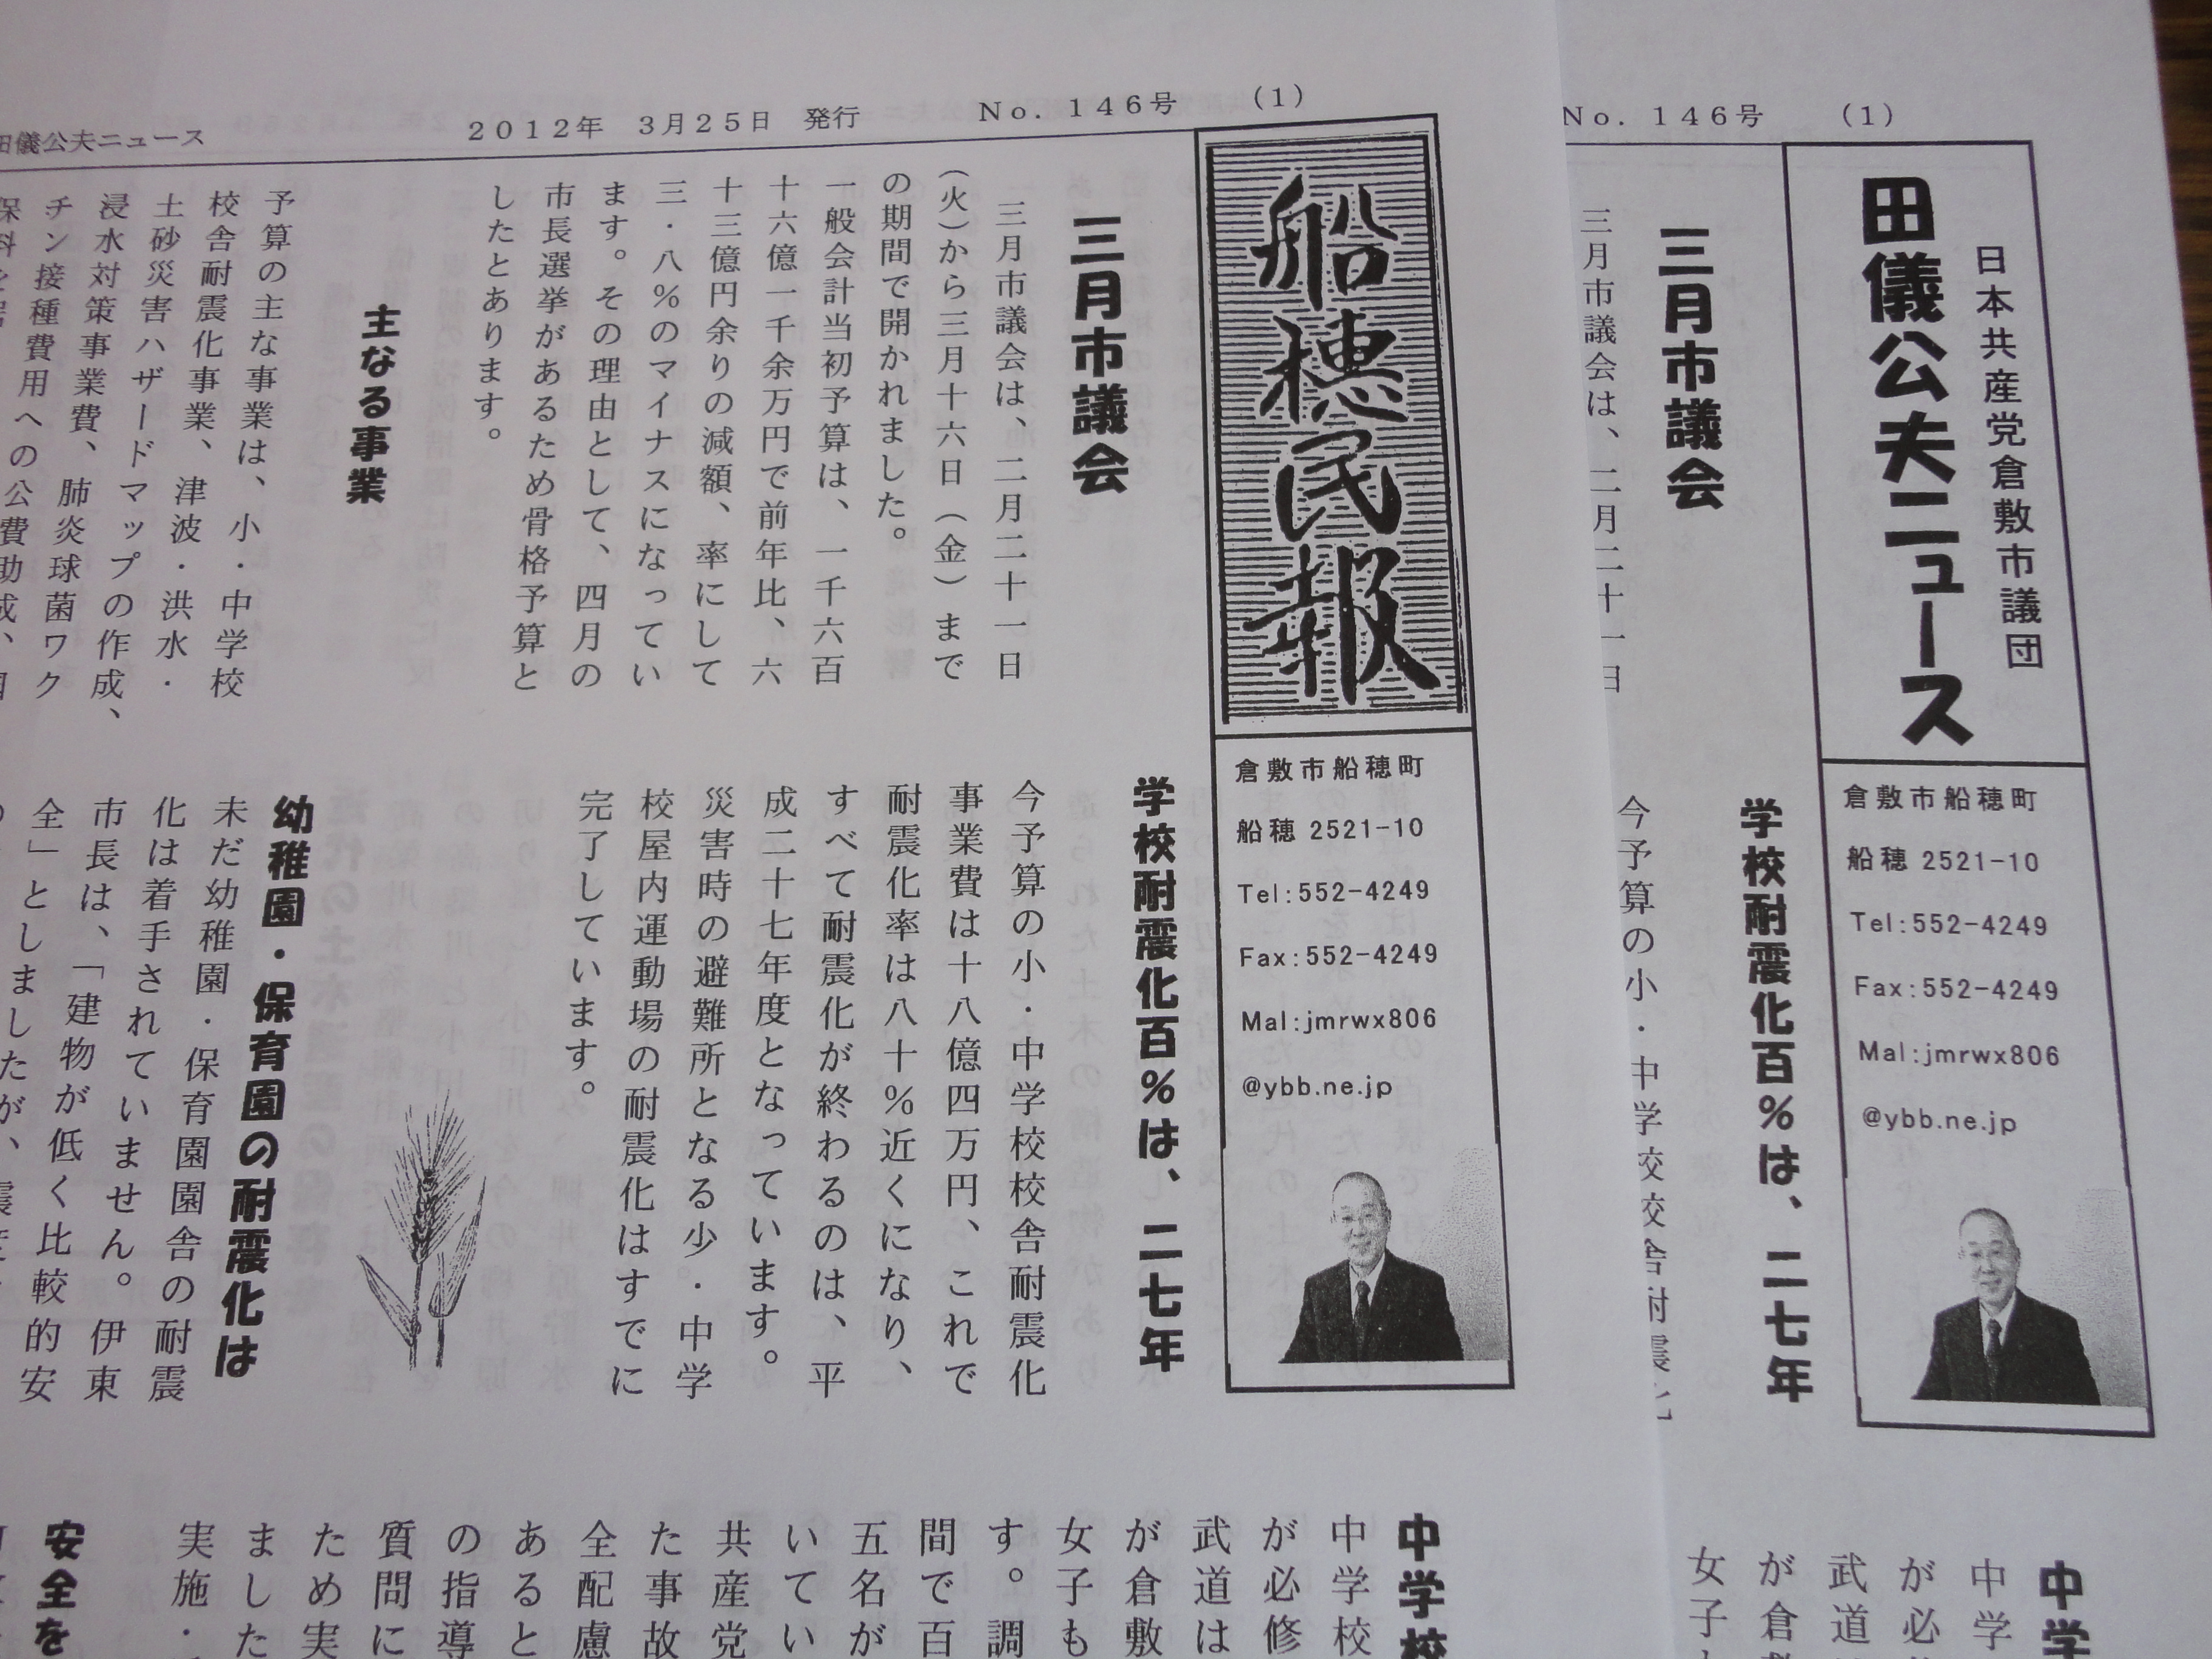 田儀公夫ニュース
2012年 3月25日 発行
No. 146号
(1)
船穂民報
倉敷市船穂町
船穂 2521-10
Tel:552-4249
Fax:552-4249
Mal:jmrwx806
@ybb.ne.jp
三月市議会
三月市議会は、二月二十一日
(火)から三月十六日(金)まで
の期間で開かれました。
一般会計当初予算は、一千六百
十六億一千余万円で前年比、六
十三億円余りの減額、率にして
三・八%のマイナスになってい
ます。その理由として、四月の
市長選挙があるため骨格予算と
したとあります。
主なる事業
予算の主な事業は、小・中学校
校舎耐震化事業、津波・洪水・
土砂災害ハザードマップの作成、
浸水対策事業費、肺炎球菌ワク
チン接種費用への公費助成、
学校耐震化百%は、二七年
今予算の小・中学校校舎耐震化
事業費は十八億四万円、これで
耐震化率は八十%近くになり、
すべて耐震化が終わるのは、平
成二十七年度となっています。
災害時の避難所となる少・中学
校屋内運動場の耐震化はすでに
完了しています。
幼稚園・保育園の耐震化は
未だ幼稚園・保育園園舎の耐震
化は着手されていません。伊東
市長は、「建物が低く比較的安
全」としましたが、
中学校
中学校
が必修
武道は
が倉敷
女子も
す。調
間で百
五名が
いてい
共産党
た事故
全配慮
あると
の指導
質問に
ため実
ました
実施・
安全を
No. 146号
(1)
日本共産党倉敷市議団
田儀公夫ニュース
倉敷市船穂町
船穂 2521-10
Tel:552-4249
Fax:552-4249
Mal:jmrwx806
@ybb.ne.jp
三月市議会
三月市議会は、二月二十一日
学校耐震化百%は、二七年
今予算の小・中学校校舎耐震化
中学
中学
が必
武道
が倉
女子